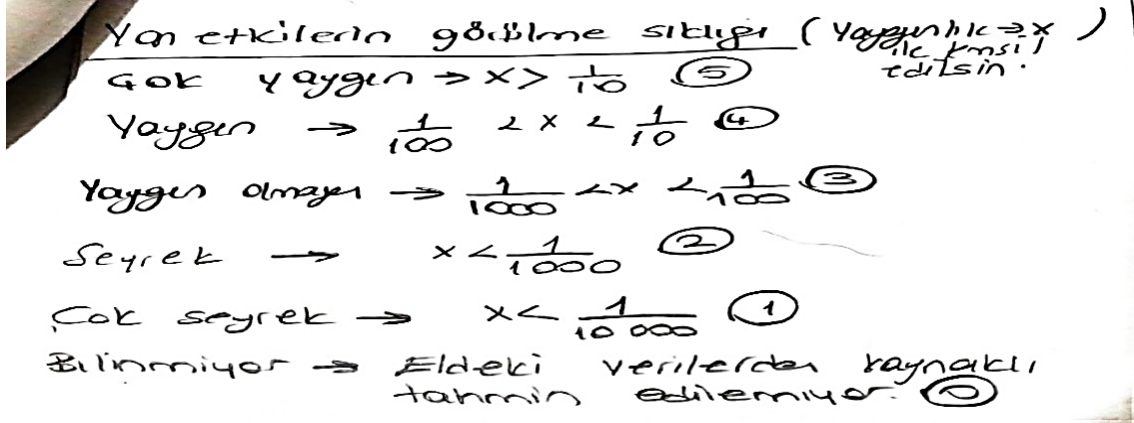 Yan etkilerin görülme sıklığı (Yaygınlık → x ile temsil edilsin.)
Çok yaygın → x > 1/10 (5)
Yaygın → 1/100 < x < 1/10 (4)
Yaygın olmayan → 1/1000 < x < 1/100 (3)
Seyrek → x < 1/1000 (2)
Çok seyrek → x < 1/10 000 (1)
Bilinmiyor → Eldeki verilerden kaynaklı
tahmin edilemiyor. (0)